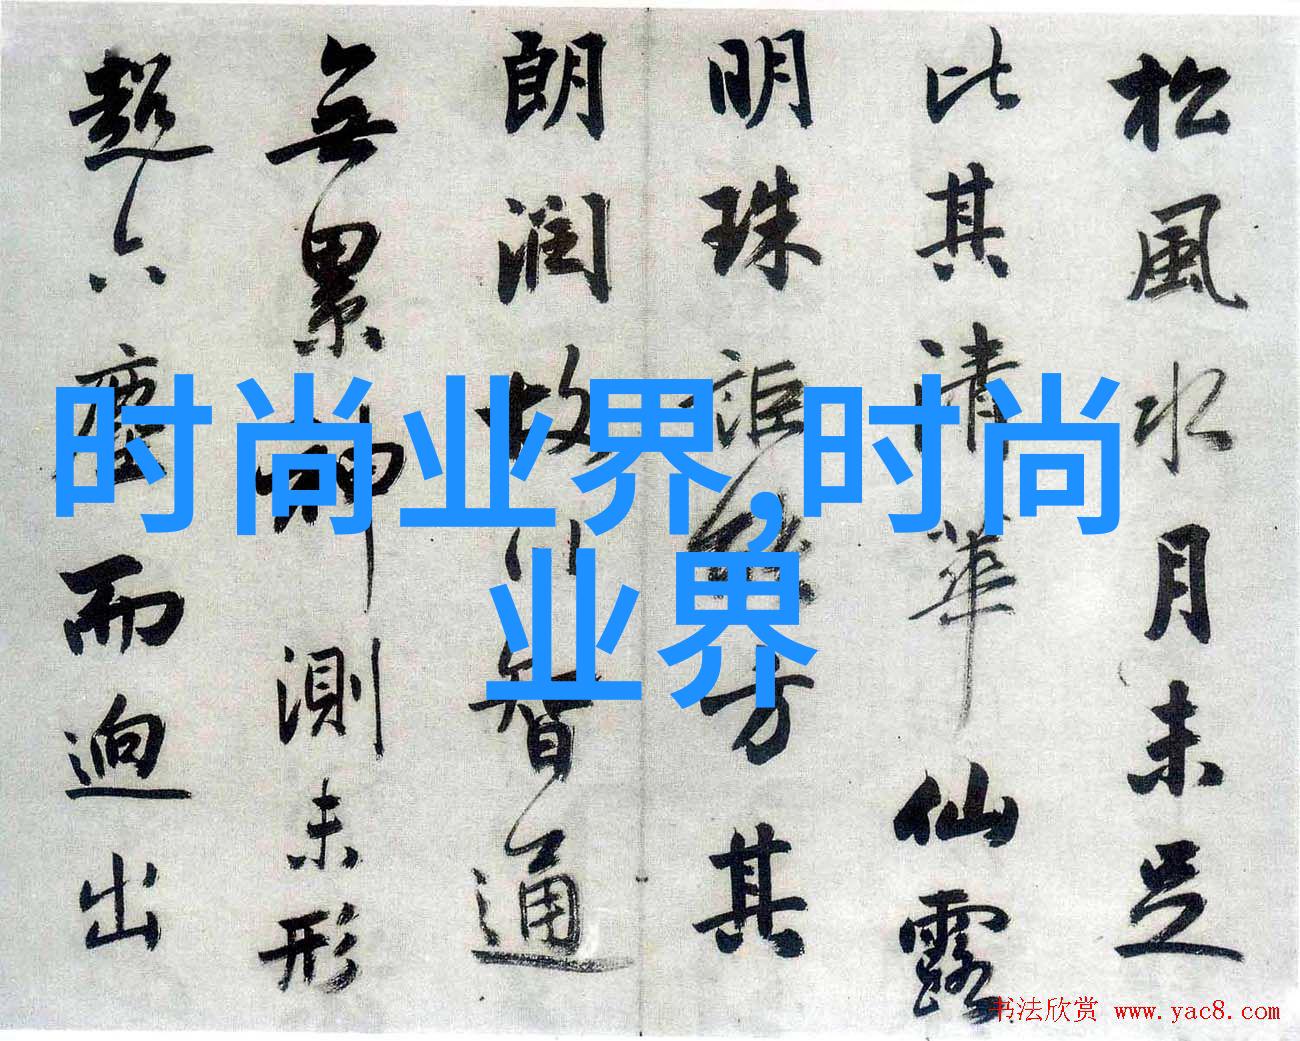 松風水月未足
比其清華仙露
明珠詎能方其
朗潤故以智通
無累神測未形
超六塵而迥出
时尚业界,时尚
业界
书法欣赏 www.yac8.com